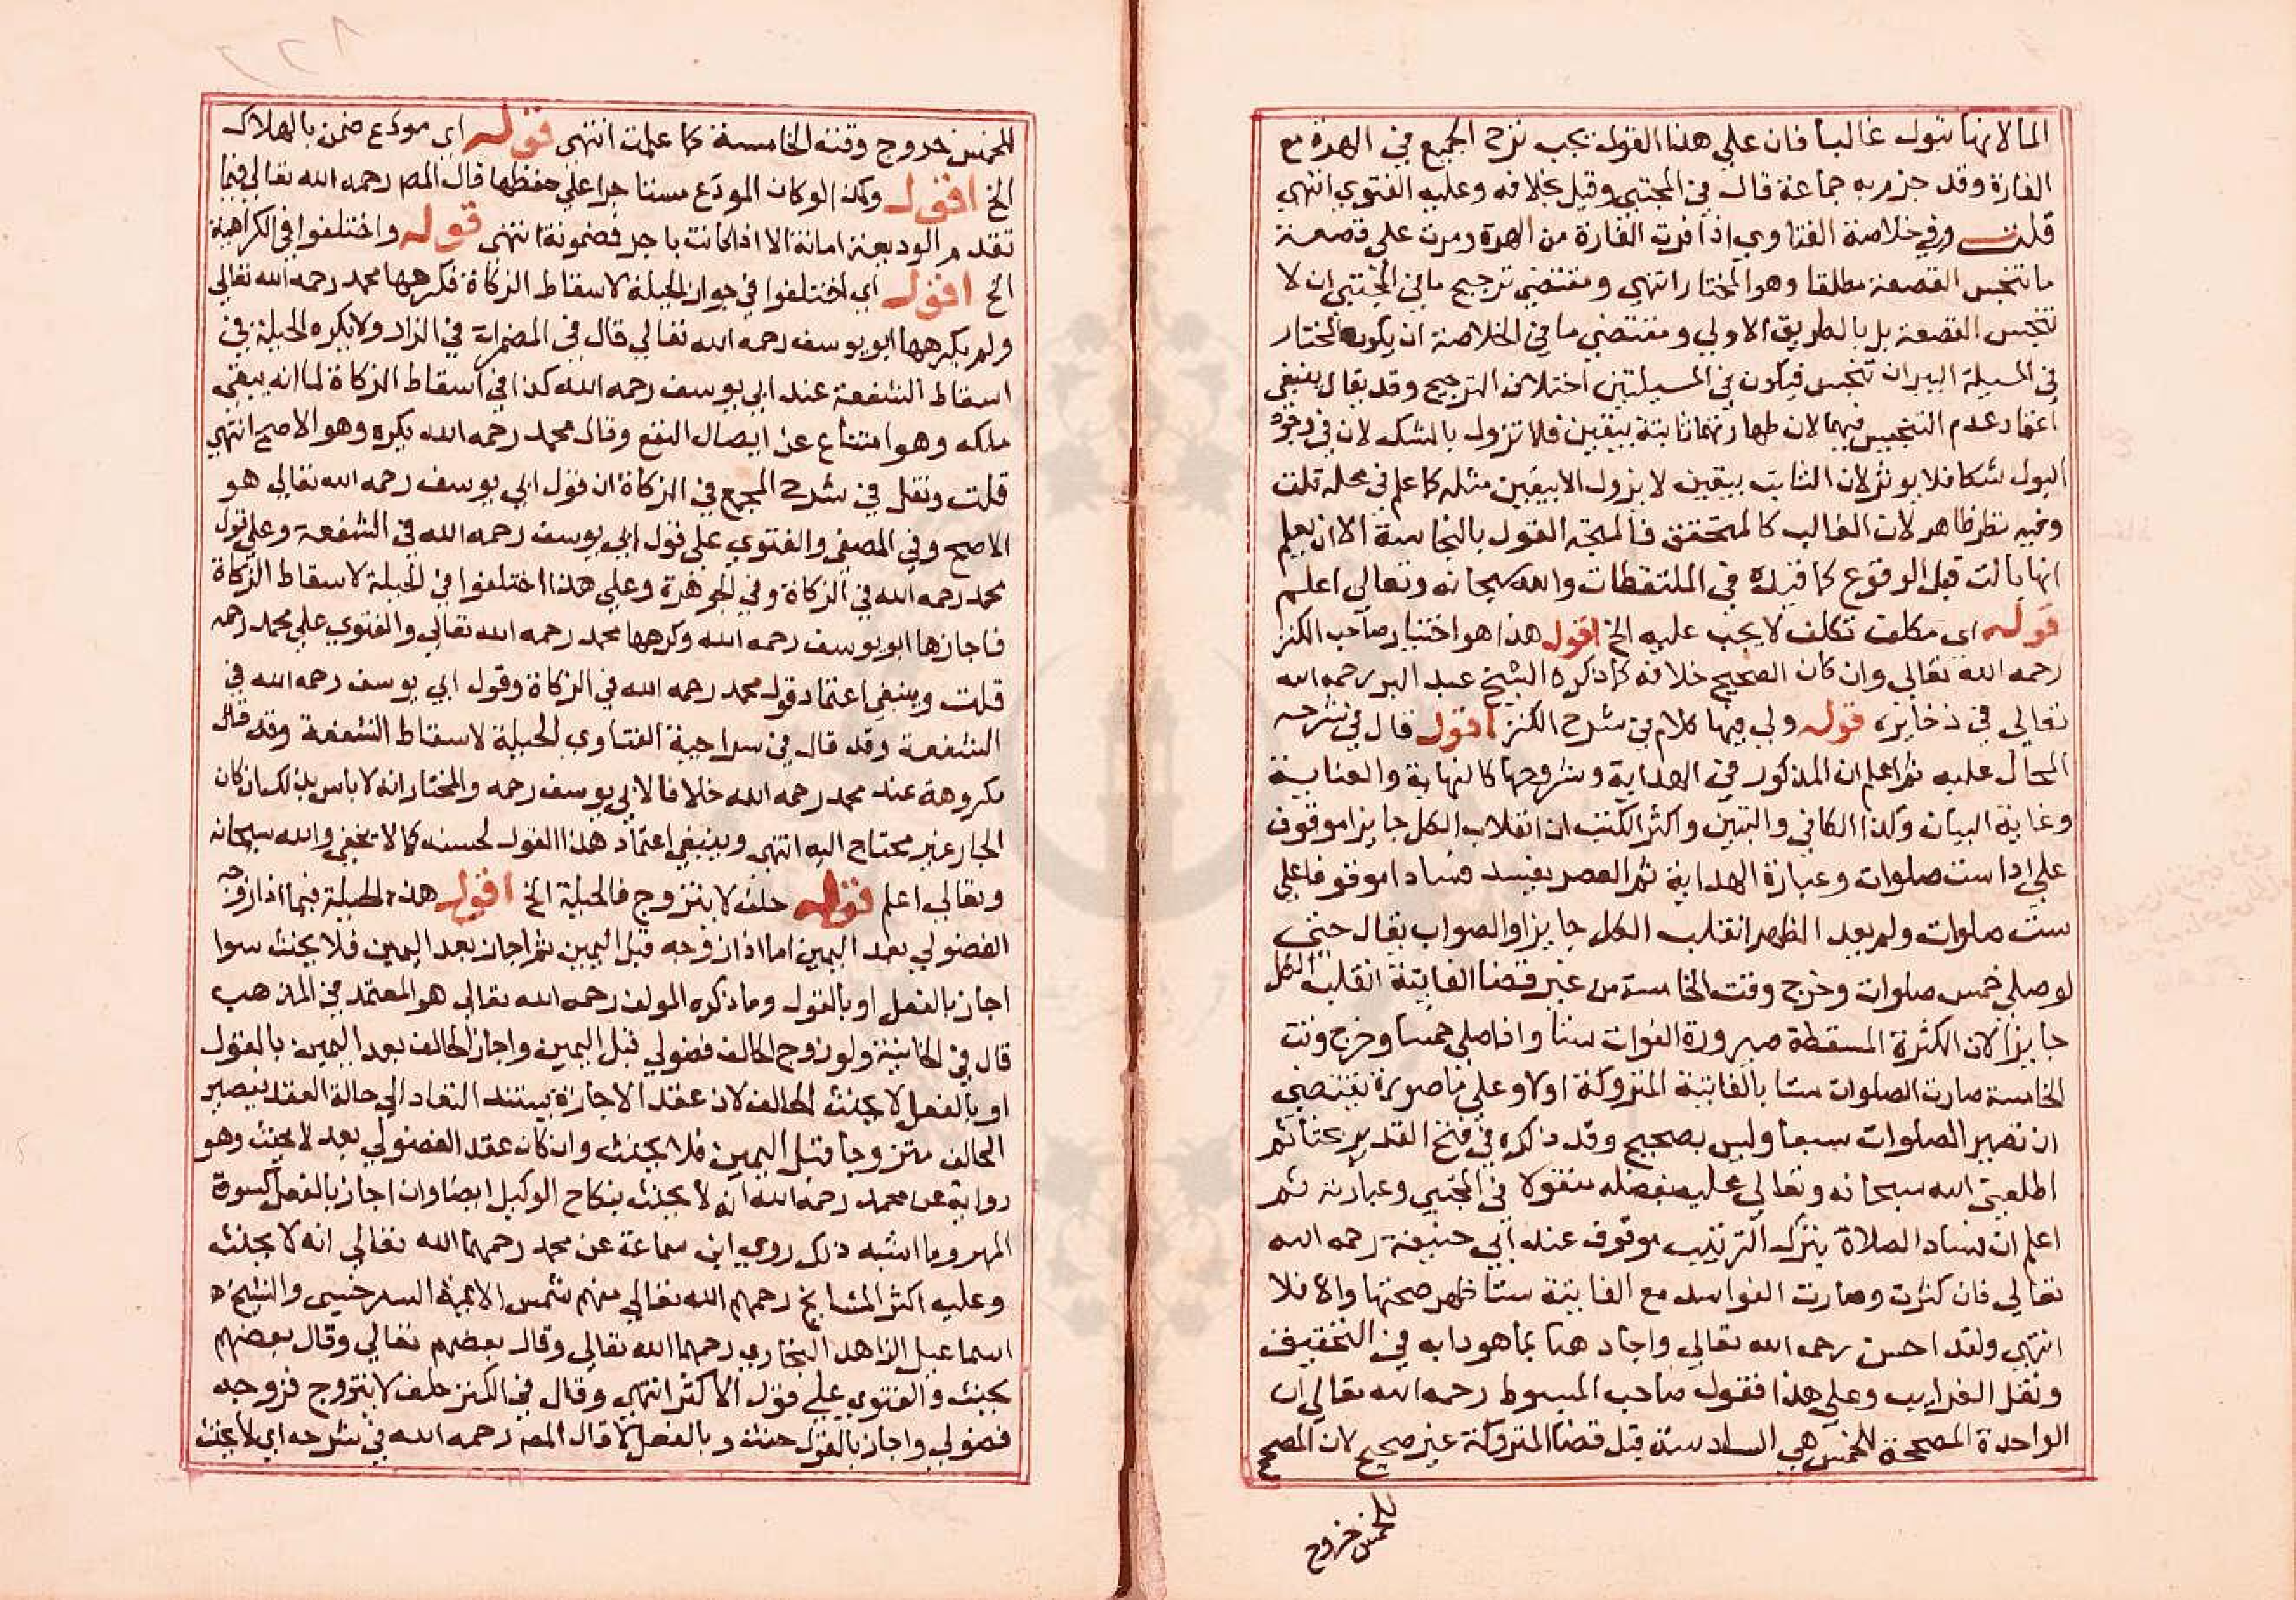 الما لانها تبول غالبا فان علي هذا القول يجب نزح الجميع في الهرة مع
الفارة وقد جزم به جماعة قال في المجتبي وقيل بخلافه وعليه الفتوي انتهي
قلت وفي خلاصة الفتاوي اذا فرت الفارة من الهرة ومرت علي قصعة
ما تنجس القصعة مطلقا وهو المختار انتهي ومقتضي ترجيح ما في المجتبي ان لا
تنجس القصعة بل بالطريق الاولي ومقتضي ما في الخلاصة ان يكون المختار
في المسيلة البير ان تنجس فيكون في المسيلتين اختلاف الترجيح وقد يقال ينبغي
اعتماد عدم التنجيس فيهما لان طهارتهما ثابتة بيقين فلا تزول بالشك لان في وجود
البول شكا فلا يوثر لان الثابت بيقين لا يزول الا بيقين مثله كما علم في محله قلت
وفيه نظر ظاهر لان الغالب كالمتحقق فالمتجه القول بالنجاسة الا ان يعلم
انها بالت قبل الوقوع كما قيده في الملتقطات والله سبحانه وتعالي اعلم
قوله اي مكلف تكلف لا يجب عليه الخ اقول هذا هو اختيار صاحب الكنز
رحمه الله تعالي وان كان الصحيح خلافه كما ذكره الشيخ عبد البر رحمه الله
تعالي في ذخايره قوله ولي فيها كلام في شرح الكنز اقول قال في شرحه
المحال عليه ثم اعلم ان المذكور في الهداية وشروحها كالنهاية والعناية
وغاية البيان وكذا الكافي والتبين واكثر الكتب ان انقلاب الكل جايزا موقوف
علي اداست صلوات وعبارة الهداية ثم العصر يفسد فسادا موقوفا علي
ست صلوات ولم يعد الظهر انقلب الكل جايزا والصواب يقال حتي
لو صلي خمس صلوات وخرج وقت الخامسة من غير قضا الفايتة انقلب الكل
جايزا لان الكثرة المسقطة صيرورة الفوات ستا واذا صلي خمسا وخرج وقت
الخامسة صارت الصلوات ستا بالفايتة المتروكة اولا وعلي ما صوره يقتضي
ان تصير الصلوات سبعا وليس بصحيح وقد ذكره في فتح القدير بحثا ثم
اطلعني الله سبحانه وتعالي عليه بفضله منقولا في المجتبي وعبارته ثم
اعلم ان فساد الصلاة بترك الترتيب موقوف عند ابي حنيفة رحمه الله
تعالي فان كثرت وصارت الفواسد مع الفايتة ستا ظهر صحتها والا فلا
انتهي ولقد احسن رحمه الله تعالي واجاد هنا بما هو دابه في التحقيق
ونقل الغرايب وعلي هذا فقول صاحب المبسوط رحمه الله تعالي ان
الواحدة المصححة للخمس هي السادسة قبل قضا المتروكة غير صحيح لان المصحح
للخمس خروج
للخمس خروج وقته الخامسة كما علمت انتهي قوله اي مودع ضمن بالهلاك
الخ اقول وكذا لو كان المودع مستاجرا علي حفظها قال المص رحمه الله تعالي فيما
تقدم الوديعة امانة الا اذا كانت باجر فمضمونة انتهي قوله واختلفوا في الكراهية
الخ اقول اي اختلفوا في جواز الحيلة لاسقاط الزكاة فكرهها محمد رحمه الله تعالي
ولم يكرهها ابو يوسف رحمه الله تعالي قال في المضمرات في الزاد ولا يكره الحيلة في
اسقاط الشفعة عند ابي يوسف رحمه الله كذا في اسقاط الزكاة لما انه يبقي
ملكه وهو امتناع عن ايصال النفع وقال محمد رحمه الله يكره وهو الاصح انتهي
قلت ونقل في شرح المجمع في الزكاة ان قول ابي يوسف رحمه الله تعالي هو
الاصح وفي المصفي والفتوي علي قول ابي يوسف رحمه الله في الشفعة وعلي قول
محمد رحمه الله في الزكاة وفي الجوهرة وعلي هذا اختلفوا في الحيلة لاسقاط الزكاة
فاجازها ابو يوسف رحمه الله وكرهها محمد رحمه الله تعالي والفتوي علي محمد رحمه
قلت وينبغي اعتماد قول محمد رحمه الله في الزكاة وقول ابي يوسف رحمه الله في
الشفعة وقد قال في سراجية الفتاوي الحيلة لاسقاط الشفعة وقد قال
مكروهة عند محمد رحمه الله خلافا لابي يوسف رحمه والمختار انه لا باس بذلك ان كان
الجار غير محتاج اليه انتهي وينبغي اعتماد هذا القول لحسنه كما لا يخفي والله سبحانه
وتعالي اعلم قوله حلف لا يتزوج فالحيلة الخ اقول هذه الحيلة فيما اذا زوجه
الفضولي بعد اليمين اما اذا زوجه قبل اليمين ثم اجاز بعد اليمين فلا يحنث سوا
اجاز بالفعل او بالقول وما ذكره المولف رحمه الله تعالي هو المعتمد في المذهب
قال في الخانية ولو زوج الحالف فضولي قبل اليمين واجاز الحالف بعد اليمين بالقول
او بالفعل لا يحنث الحالف لان عقد الاجازة يستند النفاد الي حالة العقد فيصير
الحالف متزوجا قبل اليمين فلا يحنث وان كان عقد الفضولي بعد لا يحنث وهو
رواية عن محمد رحمه الله انه لا يحنث بنكاح الوكيل ايضا وان اجاز بالفعل كسوة
المهر وما اشبه ذلك روي ابن سماعة عن محمد رحمهما الله تعالي انه لا يحنث
وعليه اكثر المشايخ رحمهم الله تعالي منهم شمس الايمة السرخسي والشيخ
اسماعيل الزاهد البخاري رحمهما الله تعالي وقال بعضهم تعالي وقال بعضهم
يحنث والفتوي علي قول الاكثر انتهي وقال في الكنز حلف لا يتزوج فزوجه
فضولي واجاز بالقول حنث وبالفعل لا قال المص رحمه الله في شرحه اي لا يحنث